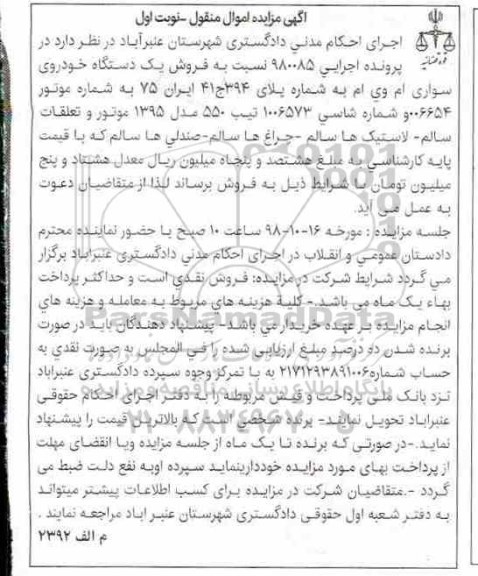 آگهی مزایده اموال منقول -نوبت اول
اجرای احکام مدني دادگستری شهرستان عنبرآباد در نظر دارد در
پرونده اجرایي ۹۸۰۰۸۵ نسبت به فروش یک دستگاه خودروی
سواری ام وي ام به شماره پلاي ۳۹۴ج۴۱ ایران ۷۵ به شماره موتور
۰۰۶۶۵۴و شماره شاسي ۱۰۰۶۵۷۳ تیب ۵۵۰ مدل ۱۳۹۵ موتور و تعلقات
سالم- لاستیک ها سالم -چراغ ها سالم-صندلي ها سالم که با قیمت
پایه کارشناسي به مبلغ هشتصد و پنجاه میلیون ریال معدل هشتاد و پنج
میلیون تومان با شرایط ذیل به فروش برساند لذا از متقاضیان دعوت
به عمل می آید.
جلسه مزایده : مورخه ۱۶-۱۰-۹۸ ساعت ۱۰ صبح با حضور نماینده محترم
دادستان عمومي و انقلاب در اجرای احکام مدني دادگستری عنبراباد برگزار
مي گردد شرایط شرکت در مزایده: فروش نقدي است و حداکثر پرداخت
بهاء یک ماه مي باشد.- کلیة هزینه هاي مربوط به معامله و هزینه هاي
انجام مزایده بر عهده خریدار مي باشد- پیشنهاد دهندگان باید در صورت
برنده شدن ده درصد مبلغ ارزیابي شده را في المجلس به صورت نقدي به
حساب شماره۲۱۷۱۲۹۳۸۹۱۰۰۶ به با تمرکز وجوه سپرده دادگستری عنبراباد
نزد بانک ملی پرداخت و فیش مربوطه را به دفتر اجرای احکام حقوقی
عنبراباد تحویل نمائند- برنده شخصي است که بالاترین قیمت را پیشنهاد
نماید.-در صورتی که برنده تا یک ماه از جلسه مزایده ویا انقضای مهلت
از پرداخت بهای مورد مزایده خودداری‌نماید سپرده اوبه نفع دلت ضبط می
گردد -.متقاضیان شرکت در مزایده برای کسب اطلاعات پیشتر میتواند
به دفتر شعبه اول حقوقی دادگستری شهرستان عنبر اباد مراجعه نمایند .
م الف ۲۳۹۲
ParsNamadData
پایگاه اطلاع رسانی مناقصه و مزایده
۰۲۱-۸۸۳۴۹۶۷۰-۵